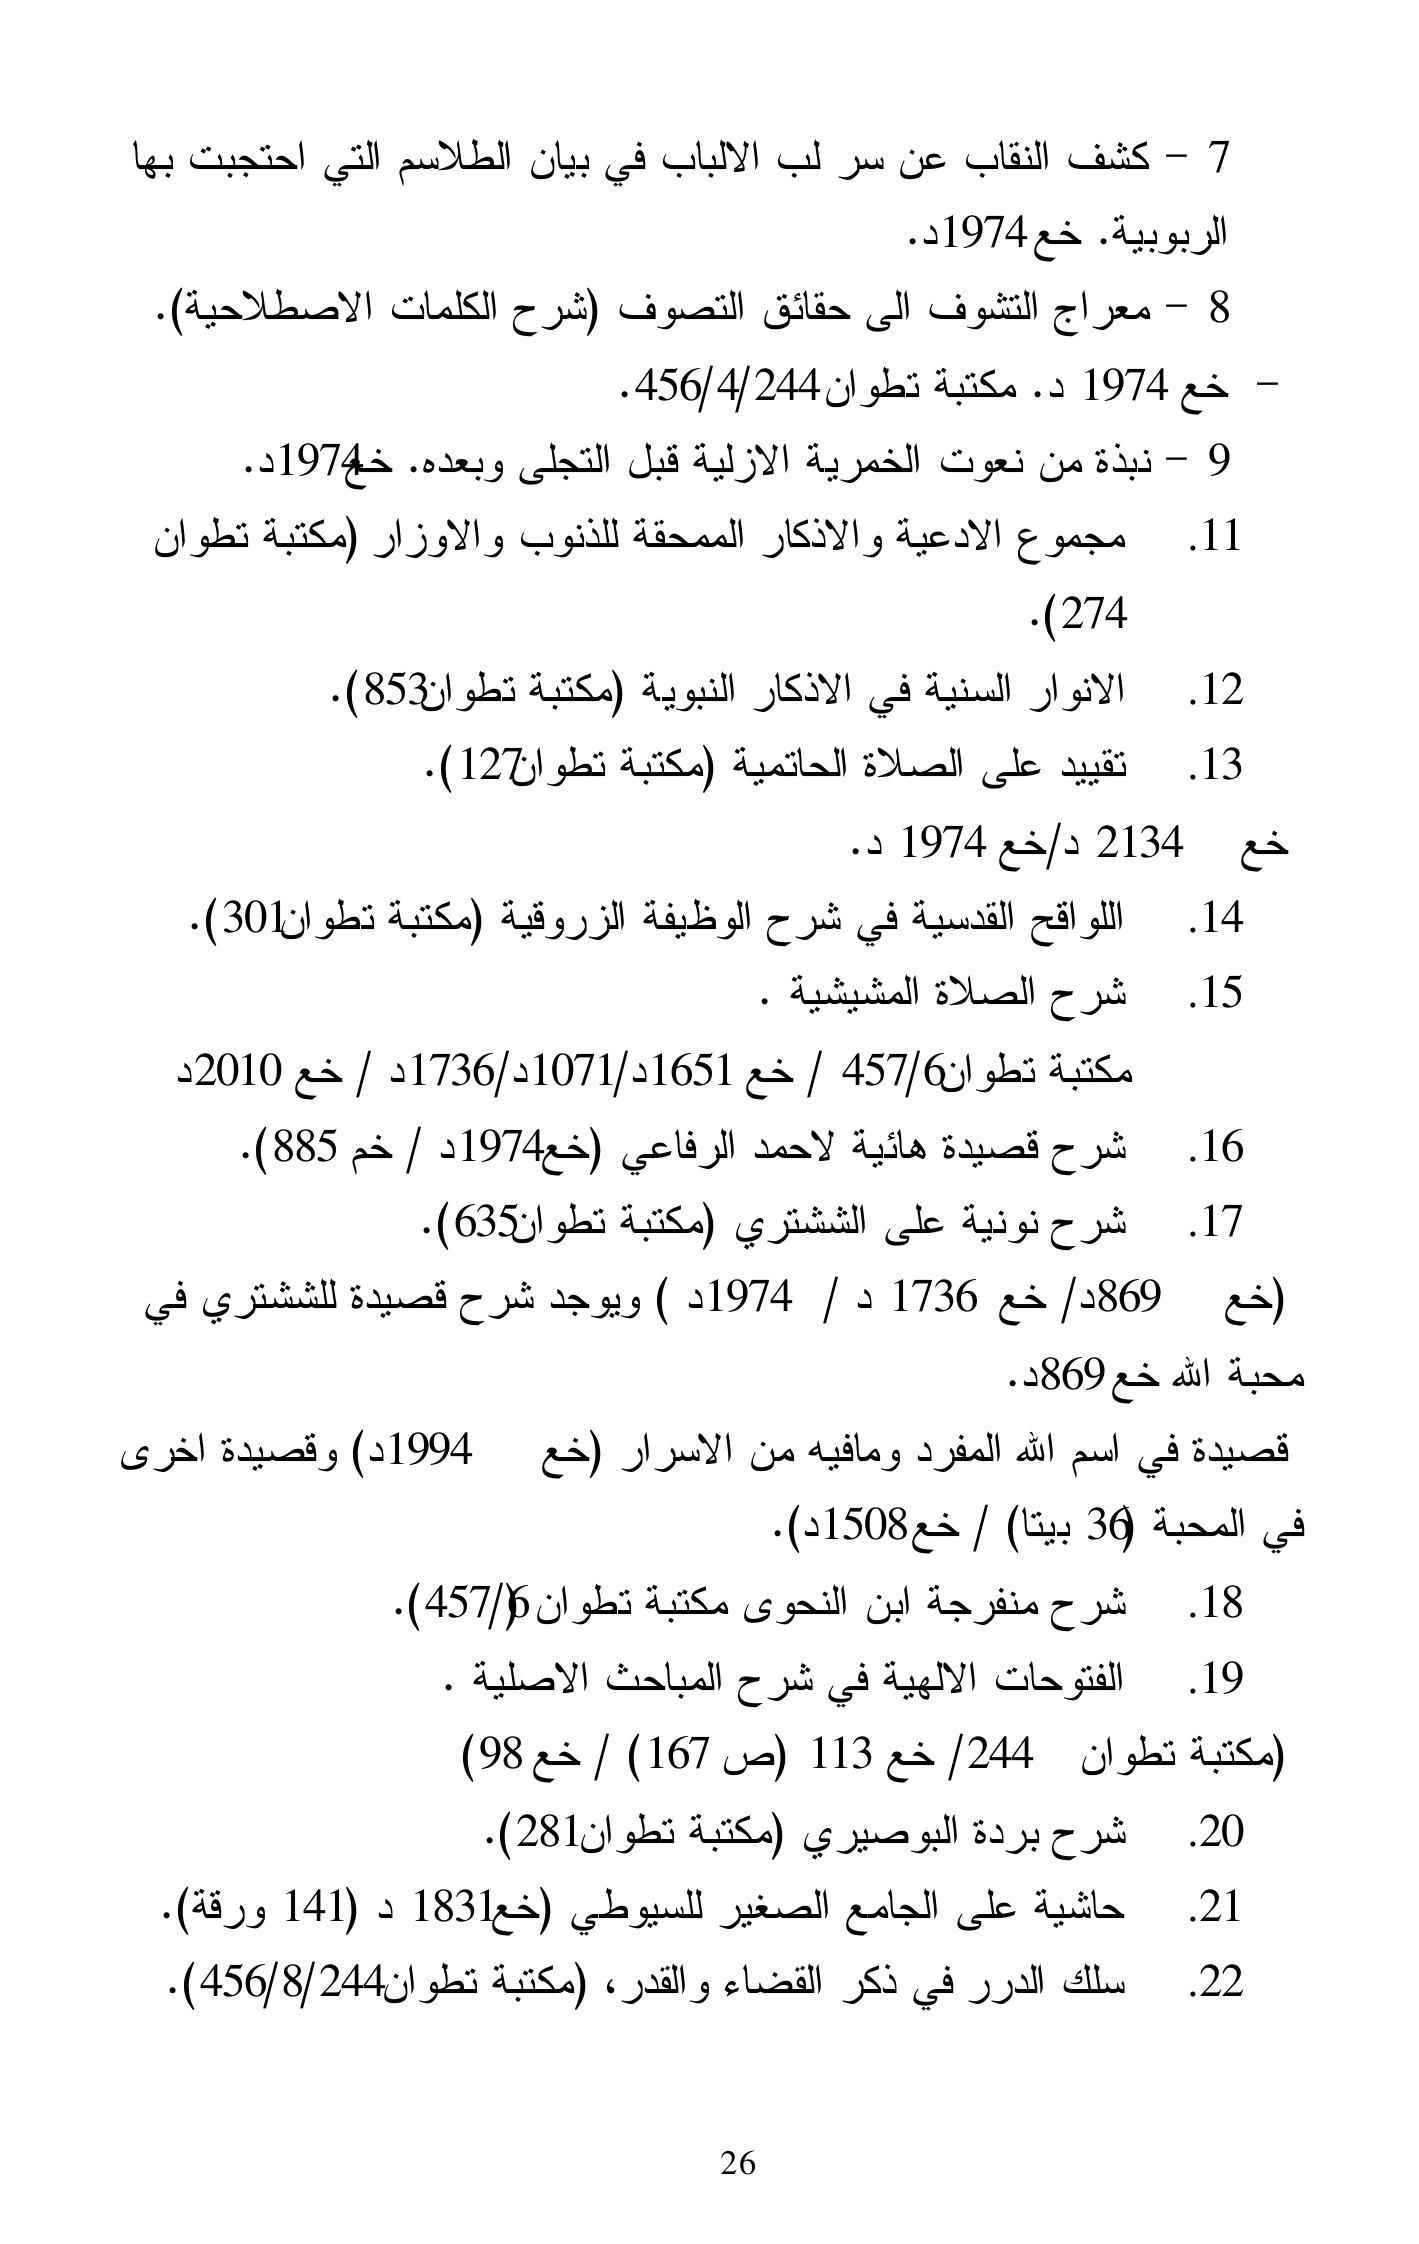 7 – كشف النقاب عن سر لب الالباب في بيان الطلاسم التي احتجبت بها
الربوبية. خع 1974د.
8 – معراج التشوف الى حقائق التصوف (شرح الكلمات الاصطلاحية).
– خع 1974 د. مكتبة تطوان 456/4/244.
9 – نبذة من نعوت الخمرية الازلية قبل التجلى وبعده. خع 1974د.
11. مجموع الادعية والاذكار الممحقة للذنوب والاوزار (مكتبة تطوان
274).
12. الانوار السنية في الاذكار النبوية (مكتبة تطوان 853).
13. تقييد على الصلاة الحاتمية (مكتبة تطوان 127).
خع 2134 د/خع 1974 د.
14. اللواقح القدسية في شرح الوظيفة الزروقية (مكتبة تطوان 301).
15. شرح الصلاة المشيشية .
مكتبة تطوان 457/6 / خع 1651د/1071د/1736د / خع 2010د
16. شرح قصيدة هائية لاحمد الرفاعي (خع 1974د / خم 885).
17. شرح نونية على الششتري (مكتبة تطوان 635).
(خع 869د/ خع 1736 د / 1974د ) ويوجد شرح قصيدة للششتري في
محبة الله خع 869د.
قصيدة في اسم الله المفرد ومافيه من الاسرار (خع 1994د) وقصيدة اخرى
في المحبة (36 بيتا) / خع 1508د).
18. شرح منفرجة ابن النحوى مكتبة تطوان (457/6).
19. الفتوحات الالهية في شرح المباحث الاصلية .
(مكتبة تطوان 244/ خع 113 (ص 167) / خع 98)
20. شرح بردة البوصيري (مكتبة تطوان 281).
21. حاشية على الجامع الصغير للسيوطي (خع 1831 د (141 ورقة).
22. سلك الدرر في ذكر القضاء والقدر، (مكتبة تطوان 456/8/244).
26